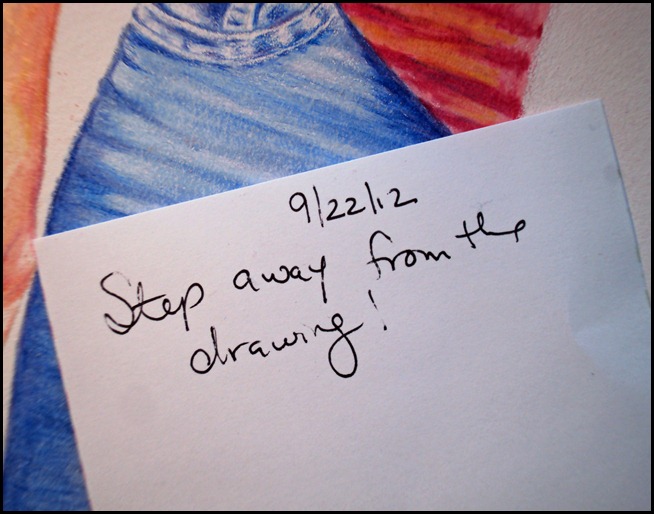 9/22/12
Step away from the
drawing!